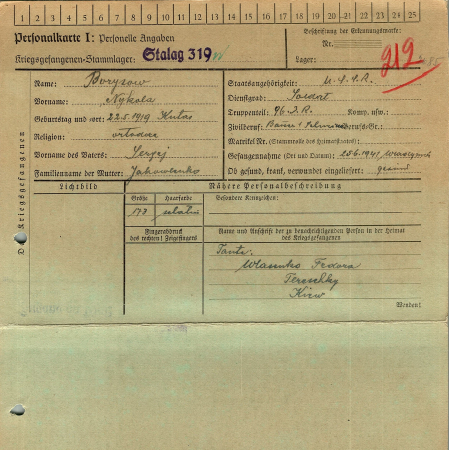 1 2 3 4 5 6 7 8 9 10 11 12 13 14 15 16 17 18 19 20 21 22 23 24 25
Personalkarte I: Personelle Angaben
Kriegsgefangenen-Stammlager: Stalag 319
Beschriftung der Erkennungsmarke:
Nr.
Lager:
Name: Borysow
Vorname: Nykola
Geburtstag und -ort: 22.5.1919 Kutas
Religion:
Vorname des Vaters: Serjej
Familienname der Mutter: Jakowenko
Staatsangehörigkeit: U.S.S.R.
Dienstgrad: Soldat
Truppenteil: 96. I.R. Komp. usw.:
Zivilberuf: Berufs-Gr.:
Matrikel Nr. (Stammrolle des Heimatstaates):
Gefangennahme (Ort und Datum): 25.6.1941
Ob gesund, krank, verwundet eingeliefert: gesund
Lichtbild
Nähere Personalbeschreibung
Größe
Haarfarbe
Besondere Kennzeichen:
173
Fingerabdruck
des rechten! Zeigefingers
Name und Anschrift der zu benachrichtigenden Person in der Heimat
des Kriegsgefangenen
Tante:
Wlasenko Fedora
Tereschky
Kiew
Wenden!
Kriegsgefangenen